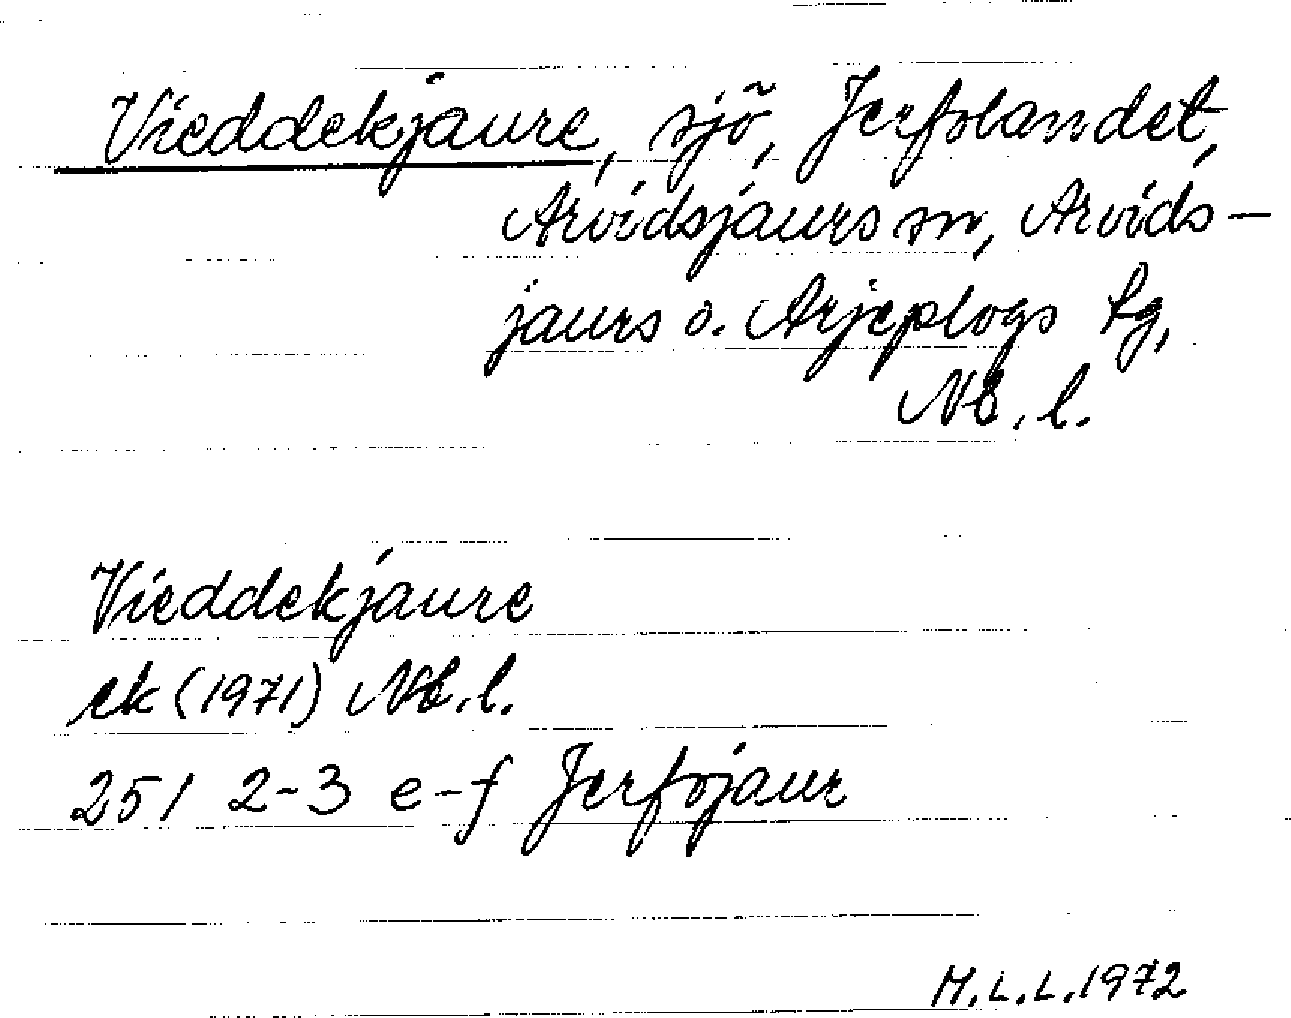 Vieddekjaure, sjö, Jerfolandet,
Arvidsjaurs sn, Arvids-
jaurs o. Arjeplogs tg,
Nb. l.
Vieddekjaure
ek (1971) Nb. l.
25I 2-3 e-f Jerfojaur
M.L.L. 1972